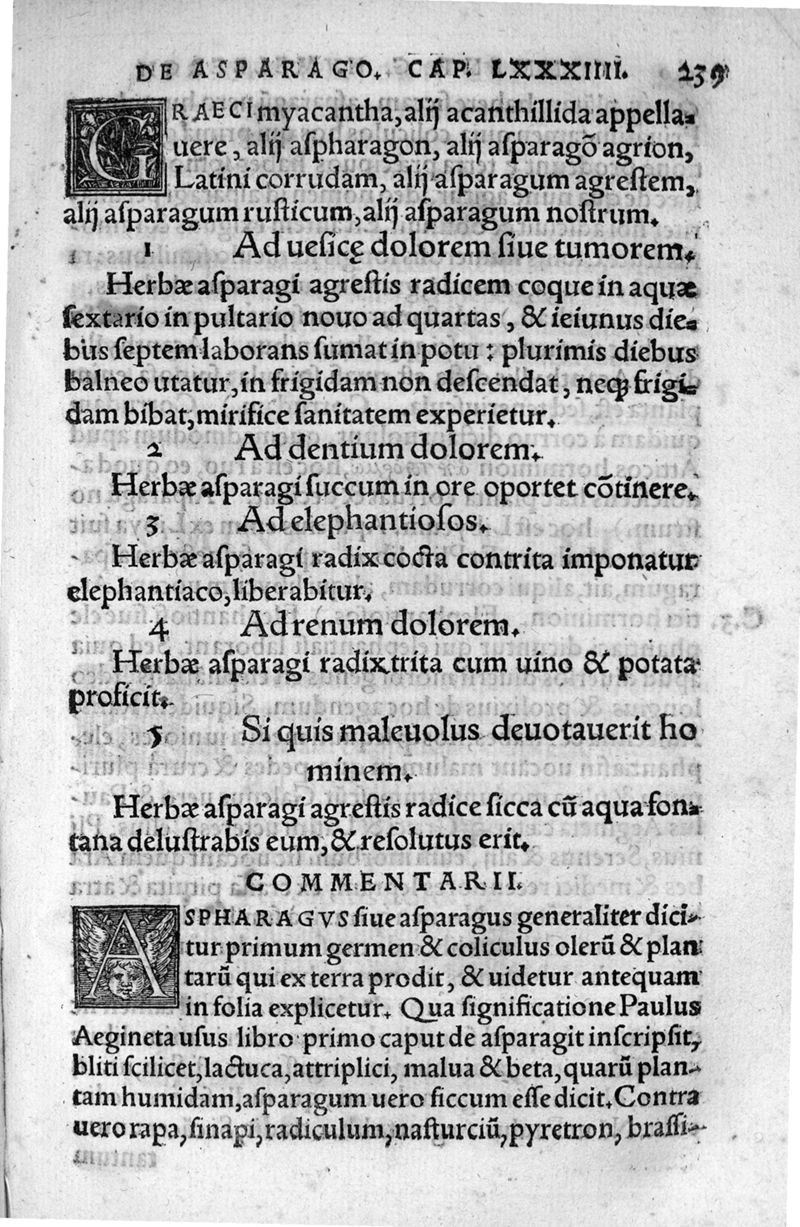 DE ASPARAGO. CAP. LXXXIIII. 239
GRAECI myacantha, alij acanthillida appella-
uere, alij aſpharagon, alij aſparagõ agrion,
Latini corrudam, alij aſparagum agreſtem,
alij aſparagum ruſticum, alij aſparagum noſtrum.
1 Ad ueſicę dolorem ſiue tumorem.
Herbæ aſparagi agreſtis radicem coque in aquæ
ſextario in pultario nouo ad quartas, & ieiunus die-
bus ſeptem laborans ſumat in potu : plurimis diebus
balneo utatur, in frigidam non deſcendat, neqꝫ frigi-
dam bibat, mirifice ſanitatem experietur.
2 Ad dentium dolorem.
Herbæ aſparagi ſuccum in ore oportet cõtinere.
3 Ad elephantioſos.
Herbæ aſparagi radix cocta contrita imponatur
elephantiaco, liberabitur.
4 Ad renum dolorem.
Herbæ aſparagi radix trita cum uino & potata
proficit.
5 Si quis maleuolus deuotauerit ho
minem.
Herbæ aſparagi agreſtis radice ſicca cũ aqua fon-
tana deluſtrabis eum, & reſolutus erit.
COMMENTARII.
ASPHARAGVS ſiue aſparagus generaliter dici-
tur primum germen & coliculus olerũ & plan
tarũ qui ex terra prodit, & uidetur antequam
in folia explicetur. Qua ſignificatione Paulus
Aegineta uſus libro primo caput de aſparagit inſcripſit,
bliti ſcilicet, lactuca, attriplici, malua & beta, quarũ plan-
tam humidam, aſparagum uero ſiccum eſſe dicit. Contra
uero rapa, ſinapi, radiculum, naſturciũ, pyretron, braſſi-